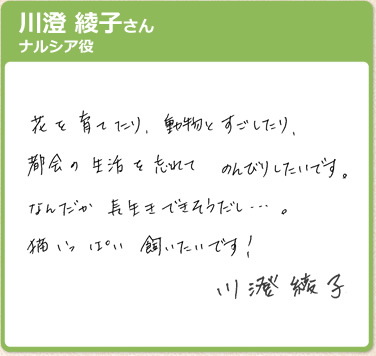 川澄 綾子さん
ナルシア役
花を育てたり、動物とすごしたり、
都会の生活を忘れて のんびりしたいです。
なんだか 長生きできそうだし…。
猫いっぱい 飼いたいです!
川澄 綾子